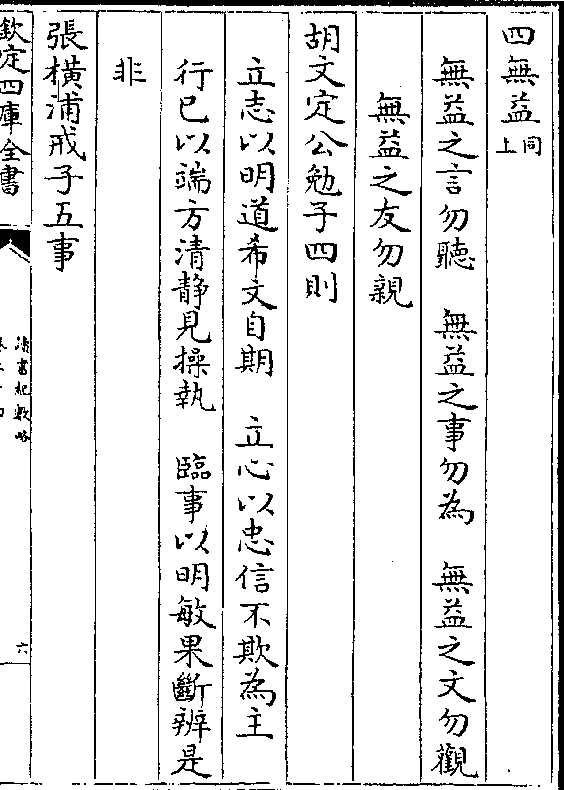 四無益同上
無益之言勿聽　無益之事勿為　無益之文勿觀
無益之友勿親
胡文定公勉子四則
立志以明道希文自期　立心以忠信不欺為主
行已以端方清静見操執　臨事以明敏果斷辨是
非
張橫浦戒子五事
欽定四庫全書
讀書紀數略
六